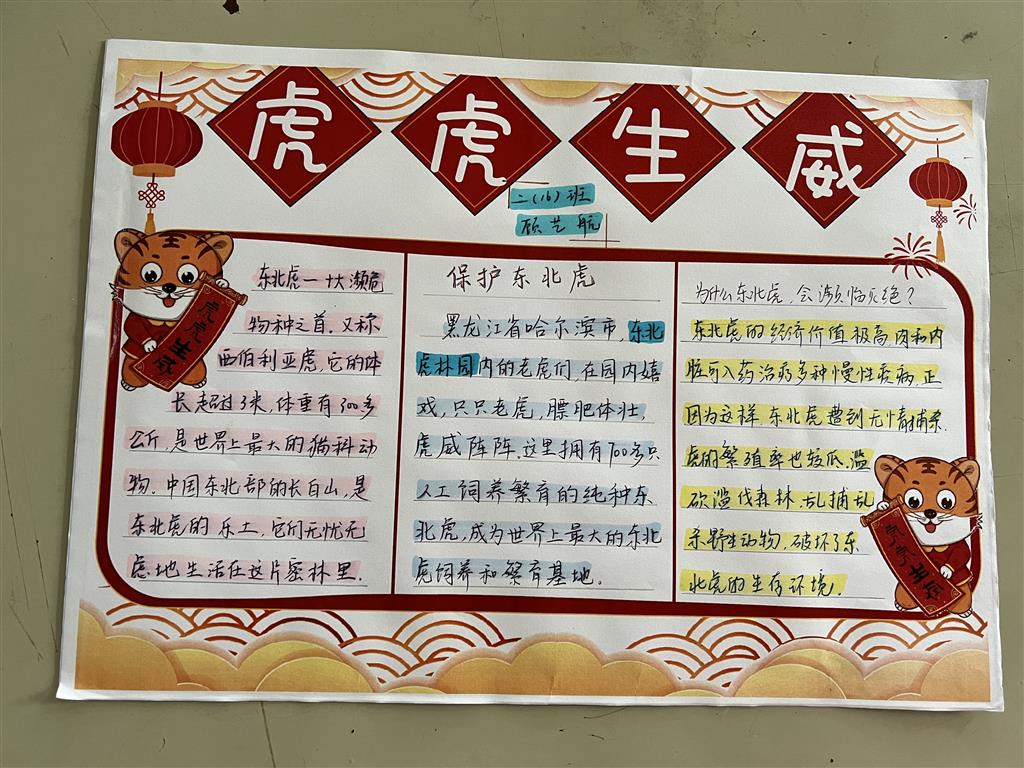 虎虎生威
二(16)班
顾艺航
虎虎生威
东北虎一十大濒危
物种之首.又称
西伯利亚虎,它的体
长超过3米,体重有300多
公斤,是世界上最大的猫科动
物.中国东北部的长白山,是
东北虎的乐土,它们无忧无
虑地生活在这片密林里.
保护东北虎
黑龙江省哈尔滨市,东北
虎林园内的老虎们,在园内嬉
戏,只只老虎,膘肥体壮,
虎威阵阵.这里拥有700多只
人工饲养繁育的纯种东
北虎,成为世界上最大的东北
虎饲养和繁育基地.
为什么东北虎,会濒临灭绝?
东北虎的经济价值极高肉和内
脏可入药治疗多种慢性疾病,正
因为这样,东北虎遭到无情捕杀.
虎的繁殖率也较低,滥
砍滥伐森林,乱捕乱
杀野生动物,破坏了东
北虎的生存环境.
虎虎生威